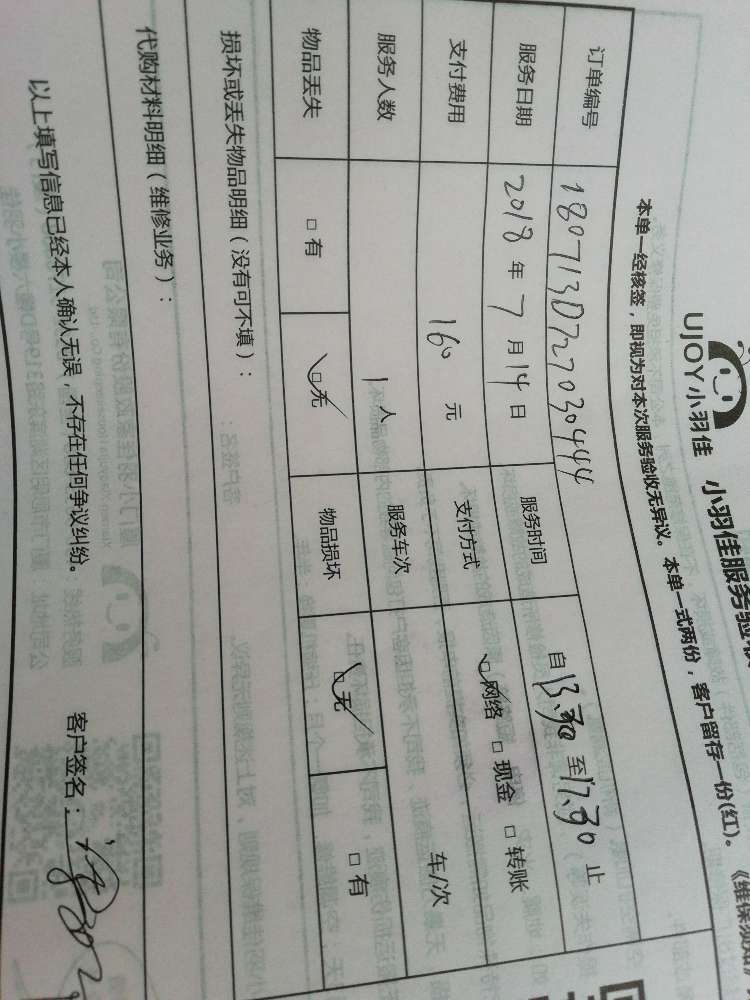 UJOY小羽佳 小羽佳服务验
本单一经核签，即视为对本次服务验收无异议。本单一式两份，客户留存一份(红)。《维保须知
订单编号 1807130727030444
服务日期 2018 年 7 月 14 日 服务时间 自 13.30 至 17.30 止
支付费用 160 元 支付方式 □网络 □现金 □转账
服务人数 1 人 服务车次 车/次
物品丢失 □有 □无 物品损坏 □无 □有
损坏或丢失物品明细（没有可不填）：
代购材料明细（维修业务）：
以上填写信息已经本人确认无误，不存在任何争议纠纷。 客户签名：